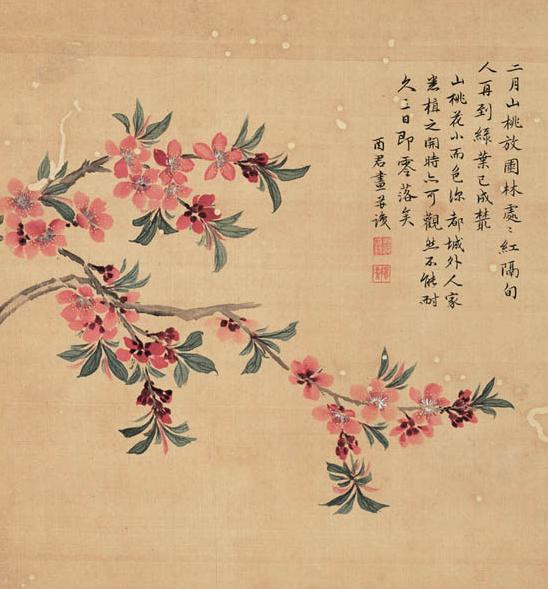 二月山桃放園林處〻紅隔旬
人再到綠葉已成叢
山桃花小而色深都城外人家
植之開時亦可觀然不能耐
久二日即零落矣
酉君畫并識